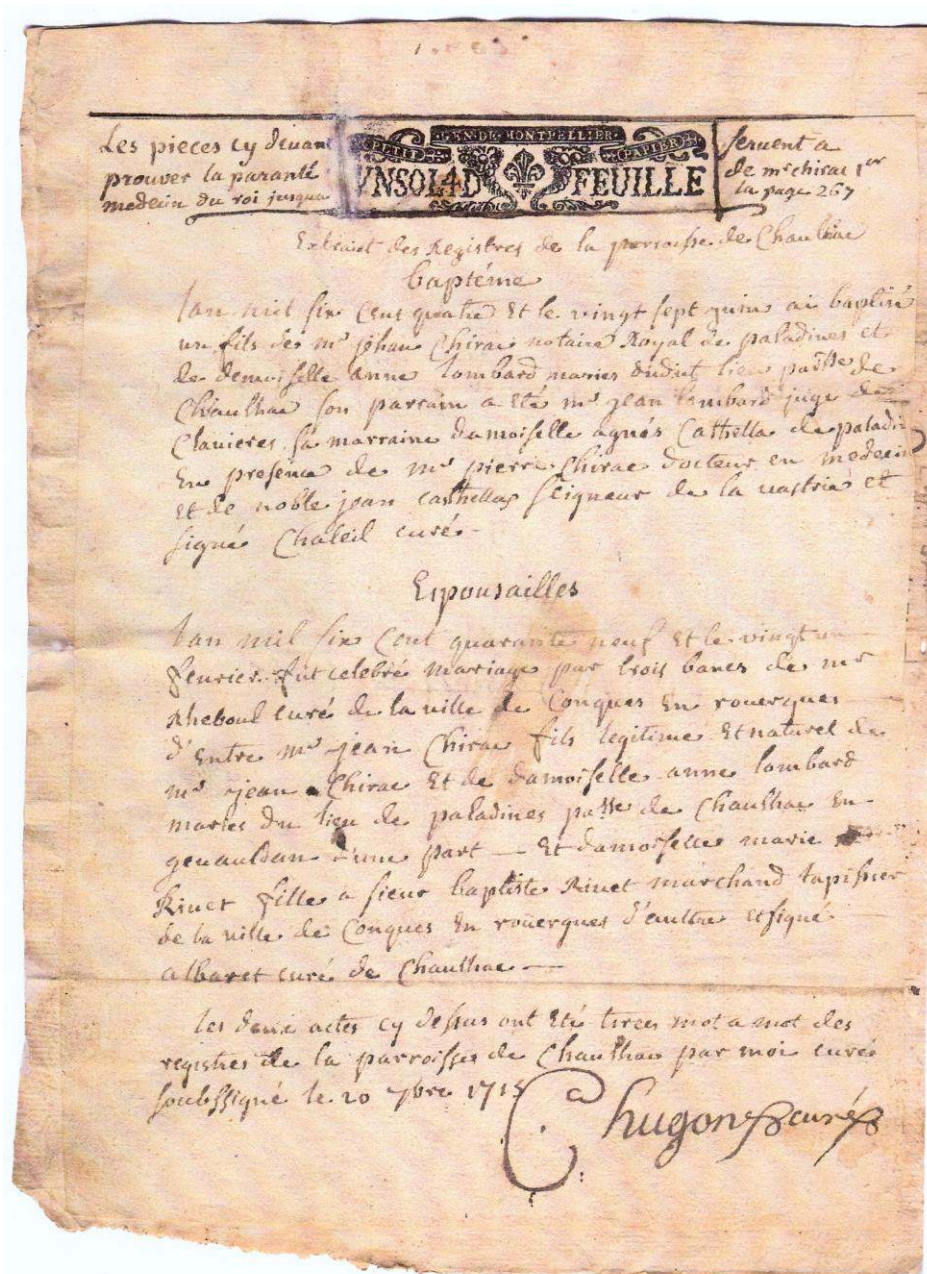 Les pieces cy devant
prouver la paranté
medecin du roi jusqua
GEN·DE·MONTPELLIER·
PETIT PAPIER
VNSOL4D FEUILLE
servent a
de mr chirac 1er
la page 267
Extrait des Registres de la perroisse de Chaulhac
baptéme
lan mil six cens quatre Et le vingt sept juin ai baptisé
un fils de mr jehan Chirac notaire Royal de paladines et
de demoiselle anne lombard maries dudit lieu passe de
Chaulhac son parrain a eté mr jean lombard juge de
Clavieres sa marraine damoiselle agnés Cathella de paladin
En presence de mr pierre Chirac docteur en medecin
Et de noble jean casthellas seigneur de la vastrie et
signé Chaleil curé -
Espousailles
lan mil six Cent quarante neuf Et le vingt un
fevrier fut celebré mariage par trois bancs de mr
Rheboul curé de la ville de Conques En rouergues
d'Entre mr jean Chirac fils legitime Et naturel de
mr jean Chirac Et de damoiselle anne lombard
maries du lieu de paladines passe de Chaulhac En
gevauldan d'une part — Et damoiselle marie
Rivet fille a sieur baptiste Rivet marchand tapissier
de la ville de Conques En rouergues d'aultre et signé
albaret curé de Chaulhac —
les deux actes cy dessus ont Eté tirees mot a mot des
registres de la parroisse de Chaulhac par moi curé
soubssigné le 20 7bre 1715
Chugon curé